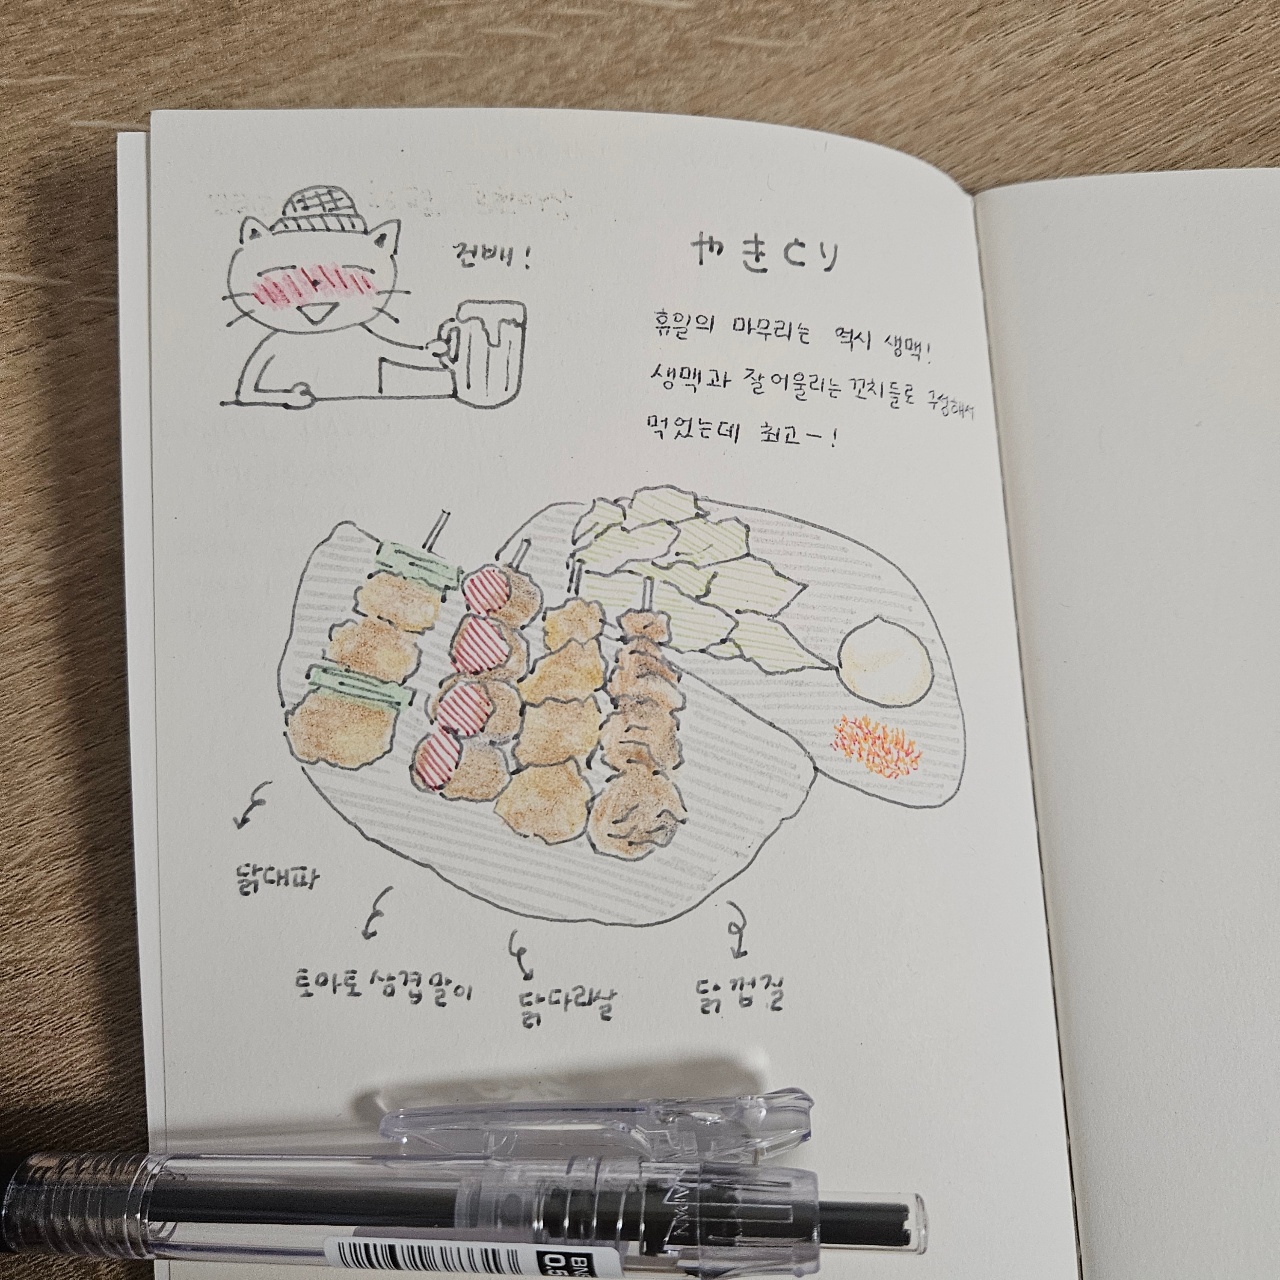 건배!
やきとり
휴일의 마무리는 역시 생맥!
생맥과 잘어울리는 꼬치들로 구성해서
먹었는데 최고ー!
닭대파
토마토삼겹말이
닭다리살
닭껍질
0.5